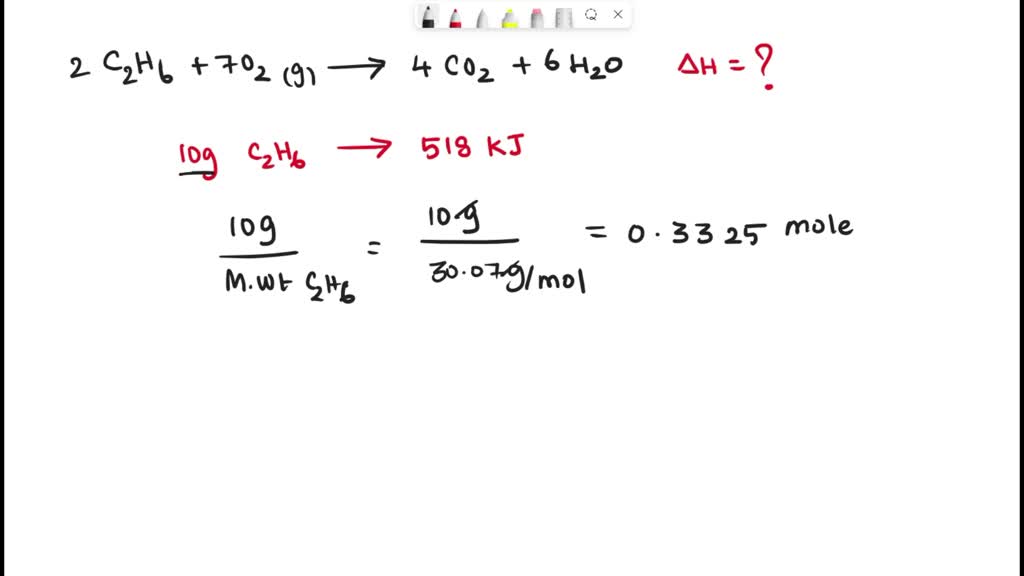 2 C₂H₆ + 7O₂ (g) ⟶ 4 CO₂ + 6 H₂O ΔH = ?
10g C₂H₆ ⟶ 518 KJ
10g / M.wt C₂H₆ = 10g / 30.07g/mol = 0.3325 mole